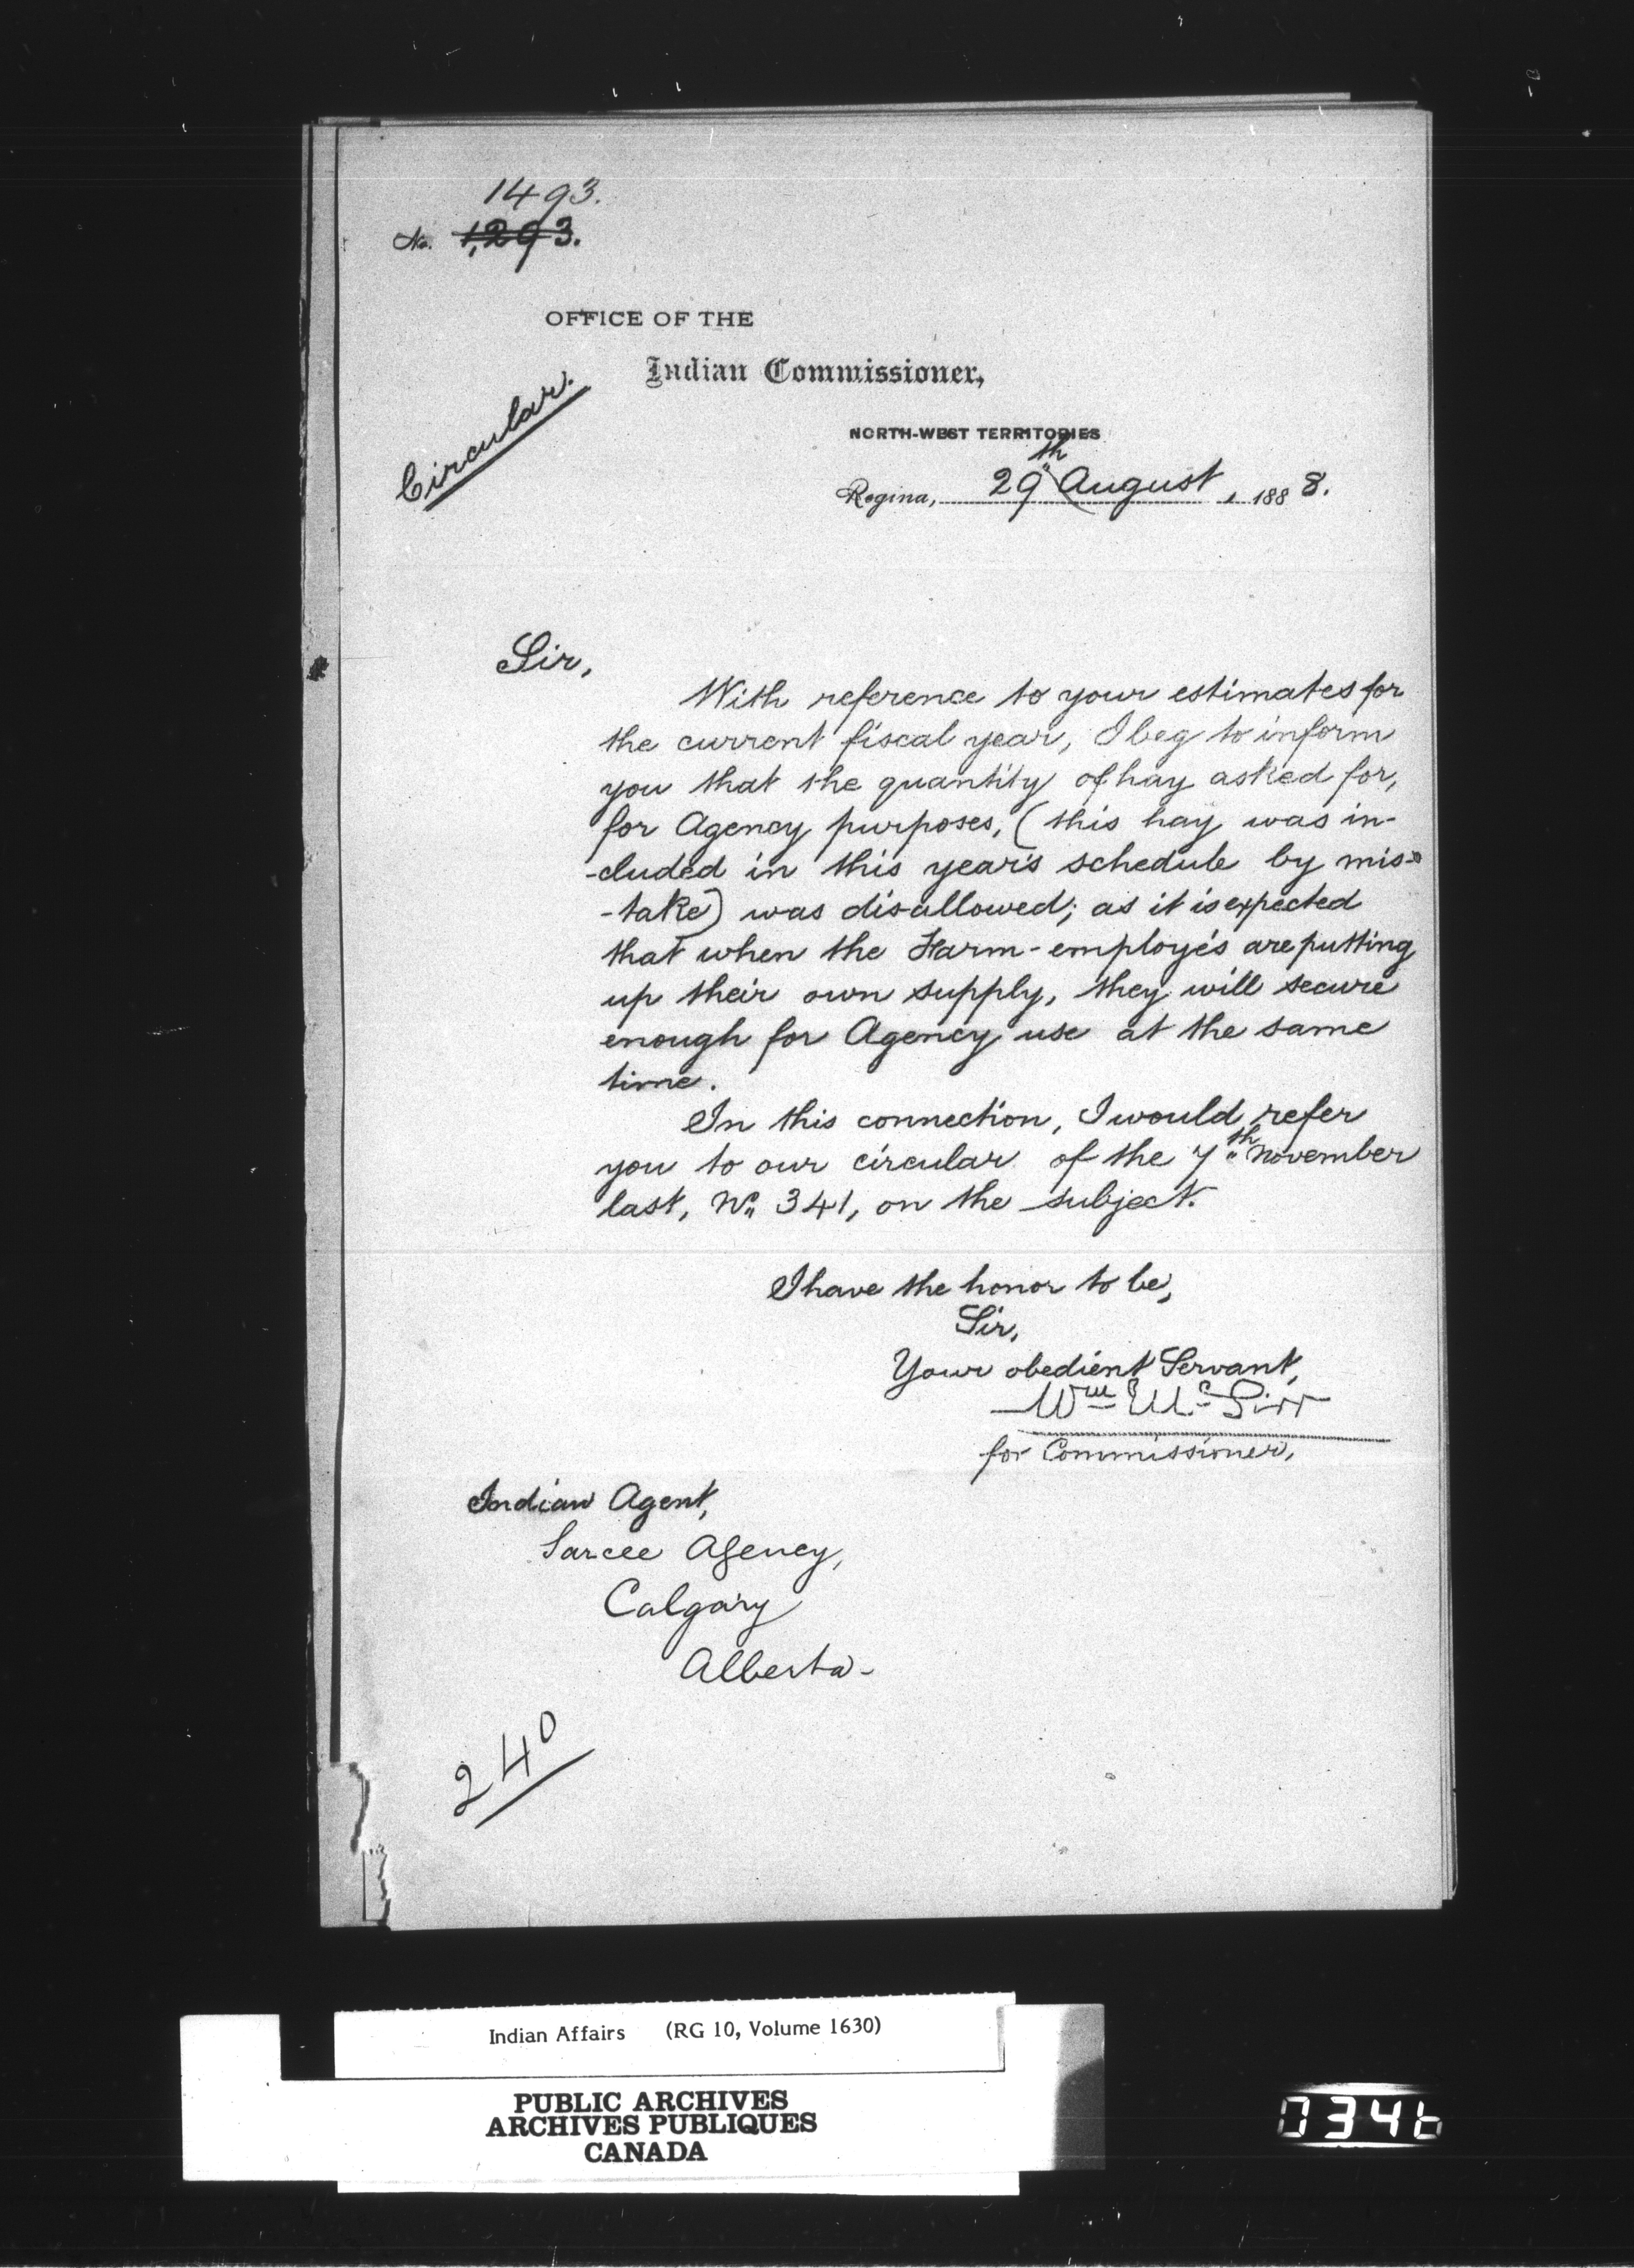 1493.
No. 1,293.
OFFICE OF THE
Indian Commissioner,
Circular.
NORTH-WEST TERRITORIES
Regina, 29th August, 1888.
Sir,
With reference to your estimates for
the current fiscal year, I beg to inform
you that the quantity of hay asked for,
for Agency purposes, (this hay was in-
-cluded in this year's schedule by mis-
-take) was disallowed; as it is expected
that when the Farm-employés are putting
up their own supply, they will secure
enough for Agency use at the same
time.
In this connection, I would refer
you to our circular of the 7th November
last, No 341, on the subject.
I have the honor to be,
Sir,
Your obedient Servant,
Wm McGirr
for Commissioner,
Indian Agent,
Sarcee Agency,
Calgary
Alberta-
240
Indian Affairs (RG 10, Volume 1630)
PUBLIC ARCHIVES
ARCHIVES PUBLIQUES
CANADA
0346